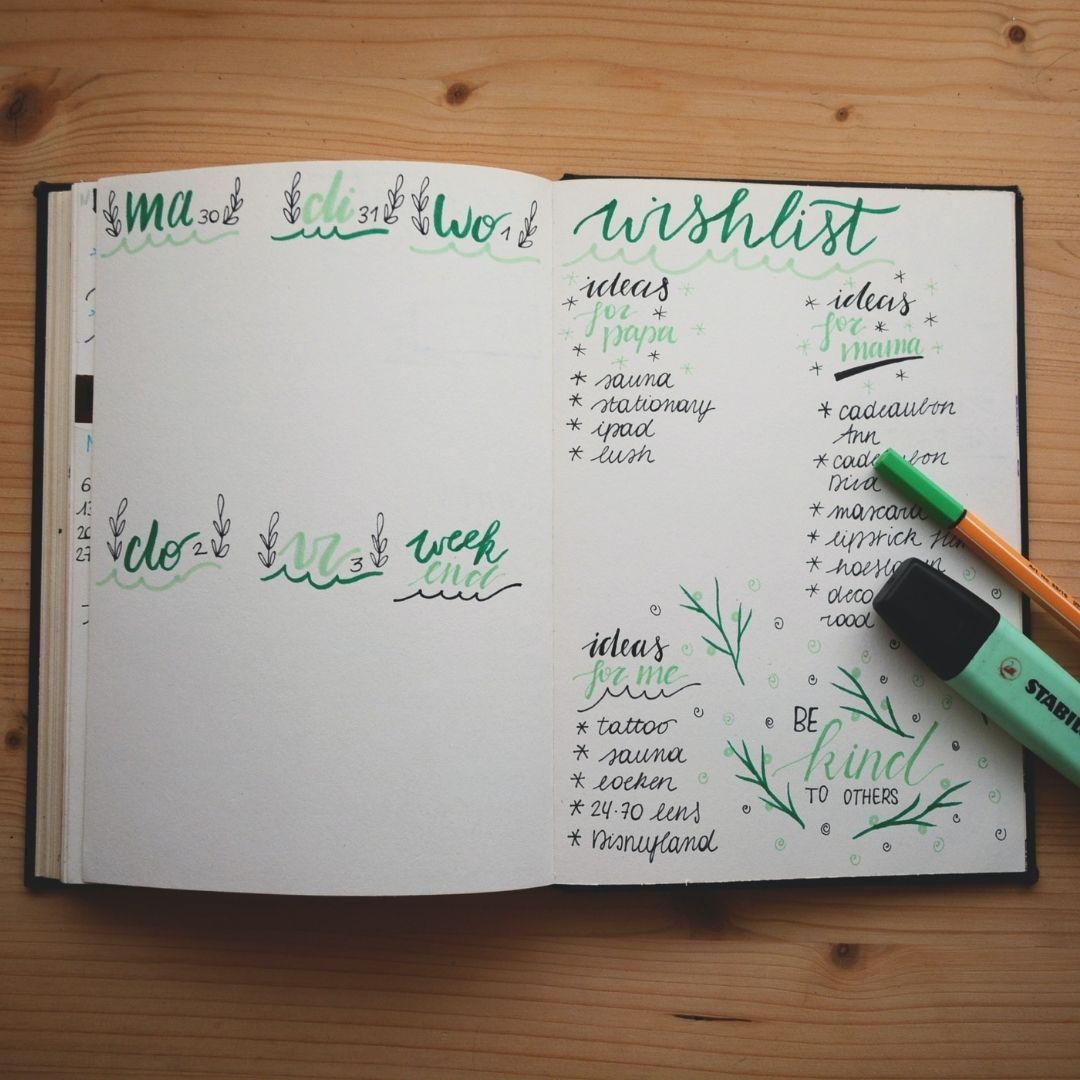 ma 30
di 31
wo 1
do 2
vr 3
week
end
wishlist
ideas
for
papa
* sauna
* stationary
* ipad
* lush
ideas
for
mama
* cadeaubon
Ann
*
* mascara
* lipstick
*
* deco
rood
ideas
for me
* tattoo
* sauna
* boeken
* 24-70 lens
* Disneyland
BE
kind
TO OTHERS
STABIL
6
13
20
27